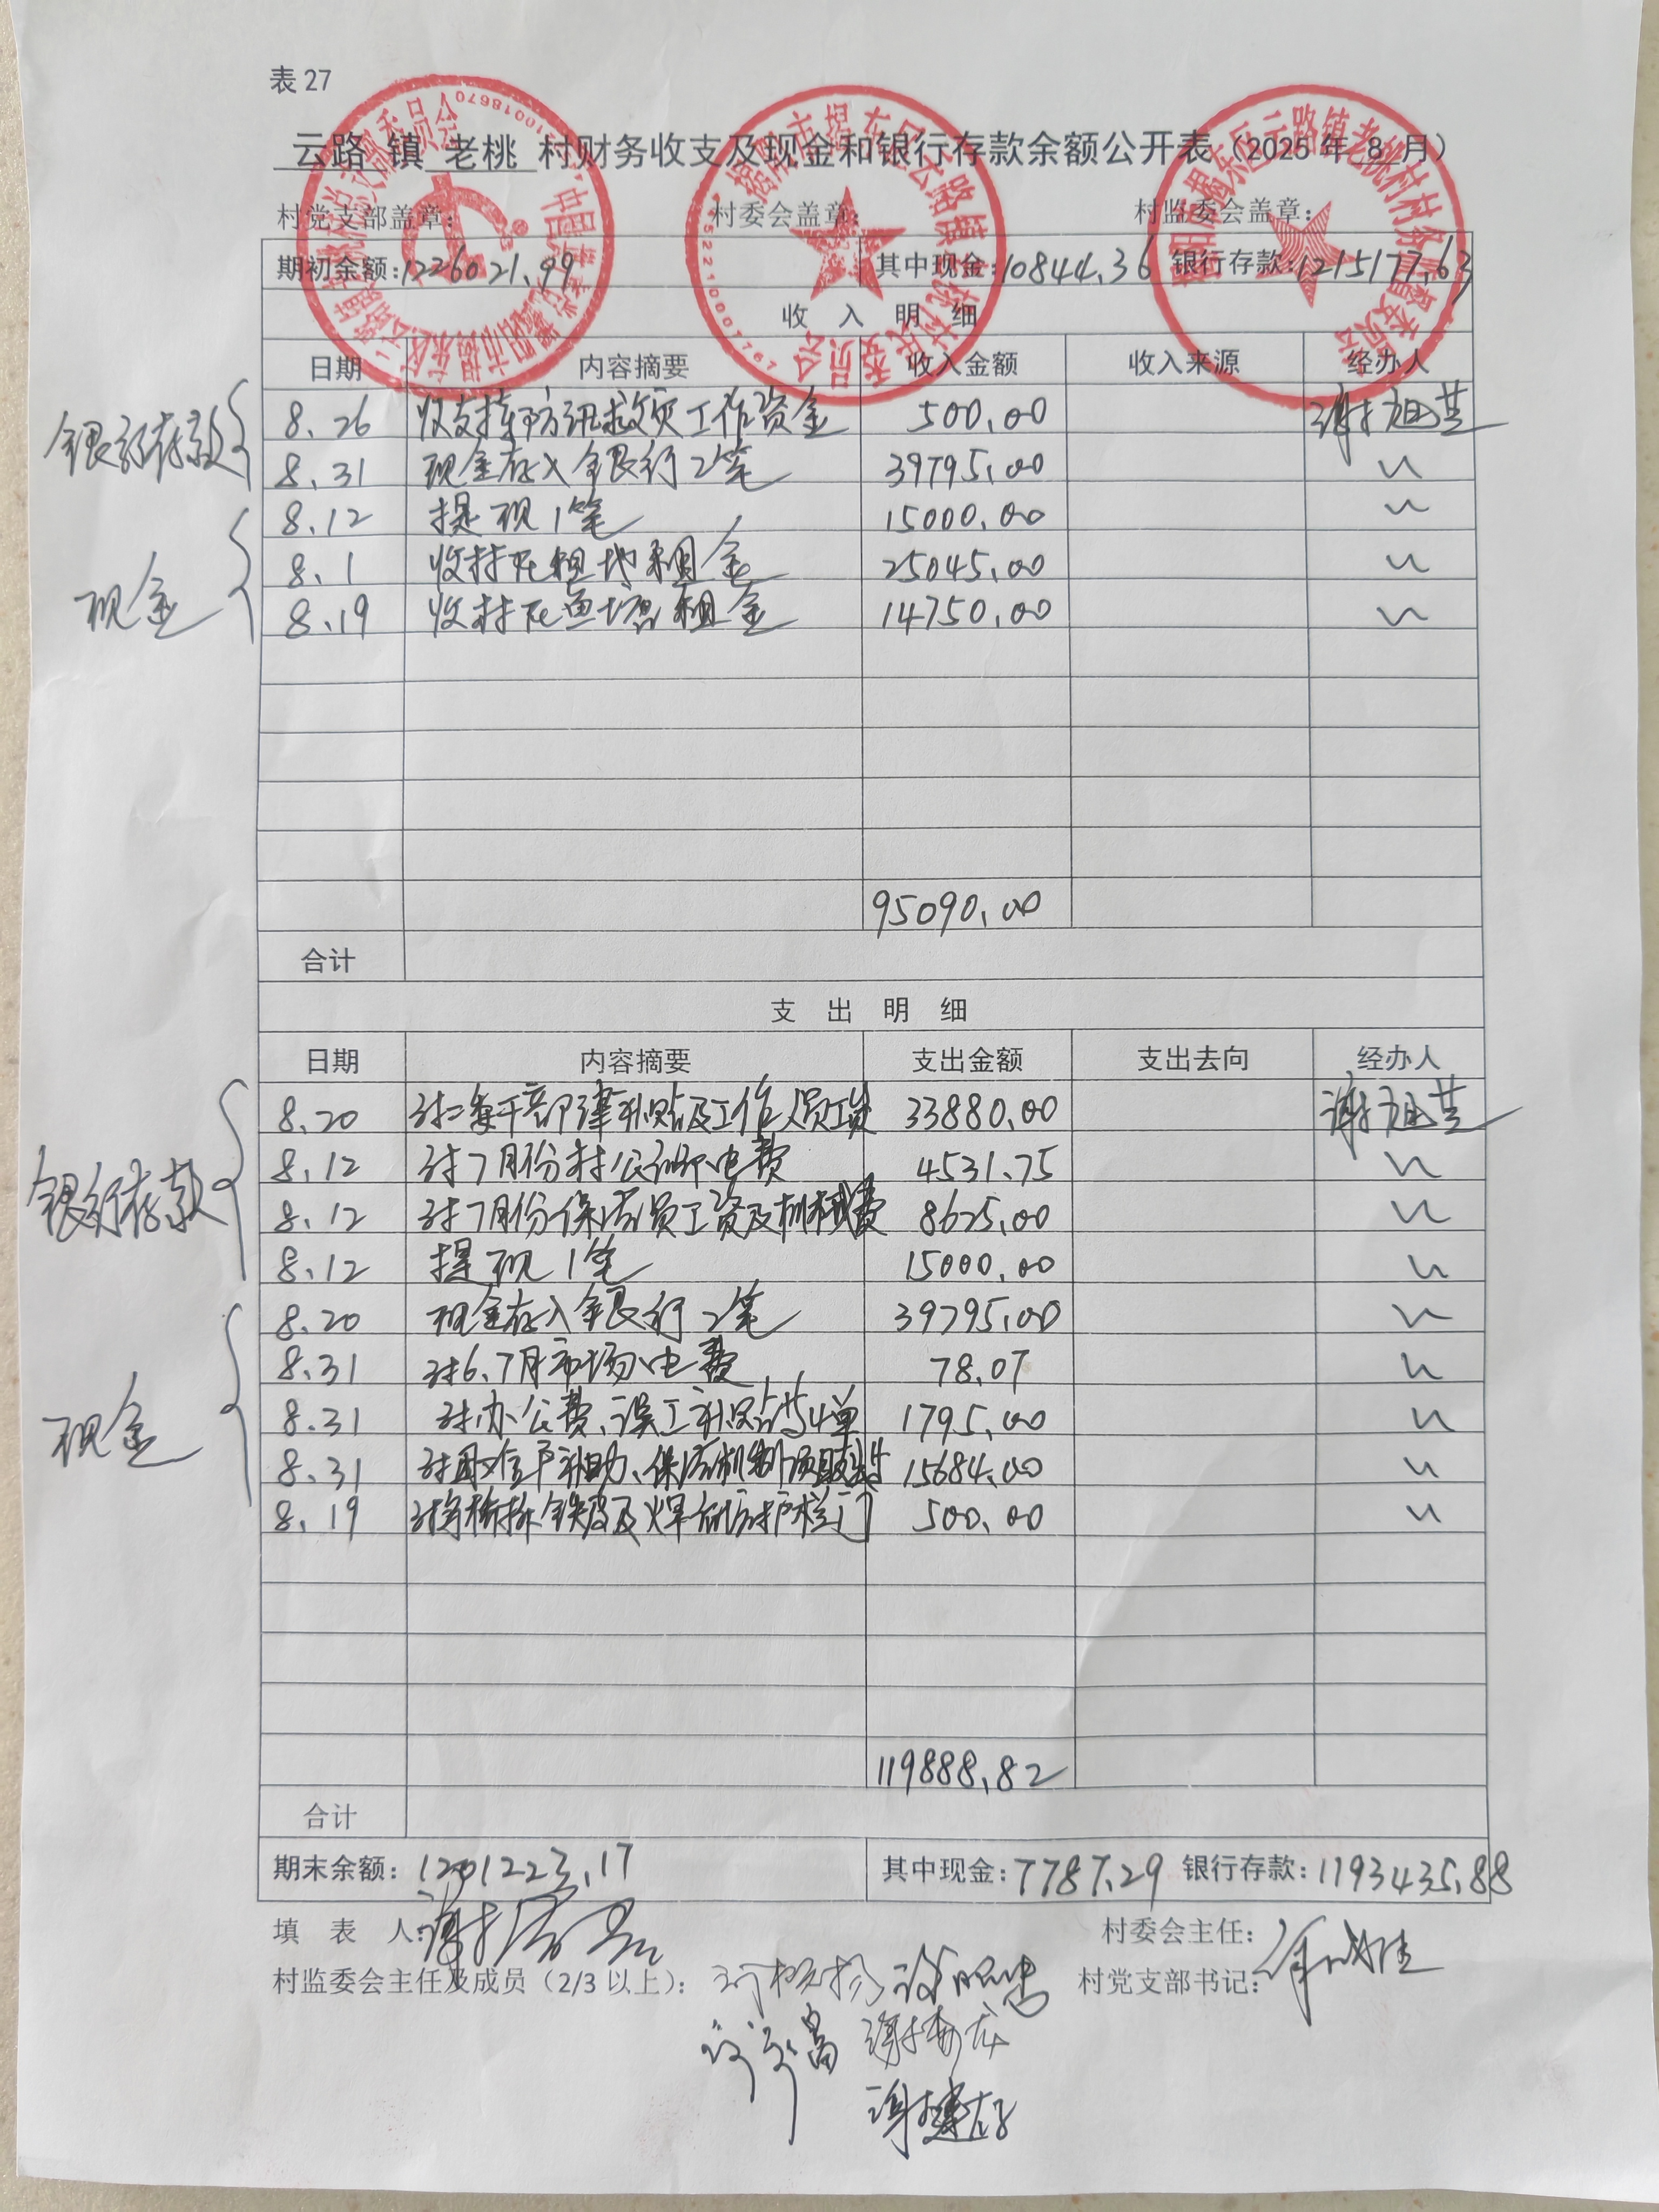 表 27
云路 镇 老桃 村财务收支及现金和银行存款余额公开表（2025 年 8 月）
村党支部盖章： 村委会盖章： 村监委会盖章：
期初余额：1226021.99 其中现金：10844.36 银行存款：1215177.63
收 入 明 细
日期 内容摘要 收入金额 收入来源 经办人
银行存款
8.26 收支持防汛救灾工作资金 500.00
8.31 现金存入银行2笔 39795.00 〃
现金
8.12 提现1笔 15000.00 〃
8.1 收村民租地租金 25045.00 〃
8.19 收村民鱼塘租金 14750.00 〃
95090.00
合计
支 出 明 细
日期 内容摘要 支出金额 支出去向 经办人
银行存款
8.20 干部 补贴及工作人员工资 33880.00
8.12 付7月份村 电费 4531.75 〃
8.12 付7月份保洁员工资及机械费 8625.00 〃
8.12 提现1笔 15000.00 〃
现金
8.20 现金存入银行2笔 39795.00 〃
8.31 付6.7月市场电费 78.07 〃
8.31 付办公费、误工补贴 4单 1795.00 〃
8.31 补助、保洁 15684.00 〃
8.19 铁皮及焊 护栏门 500.00 〃
119888.82
合计
期末余额：1201223.17 其中现金：7787.29 银行存款：1193435.88
填 表 人： 村委会主任：
村监委会主任及成员（2/3 以上）： 村党支部书记：